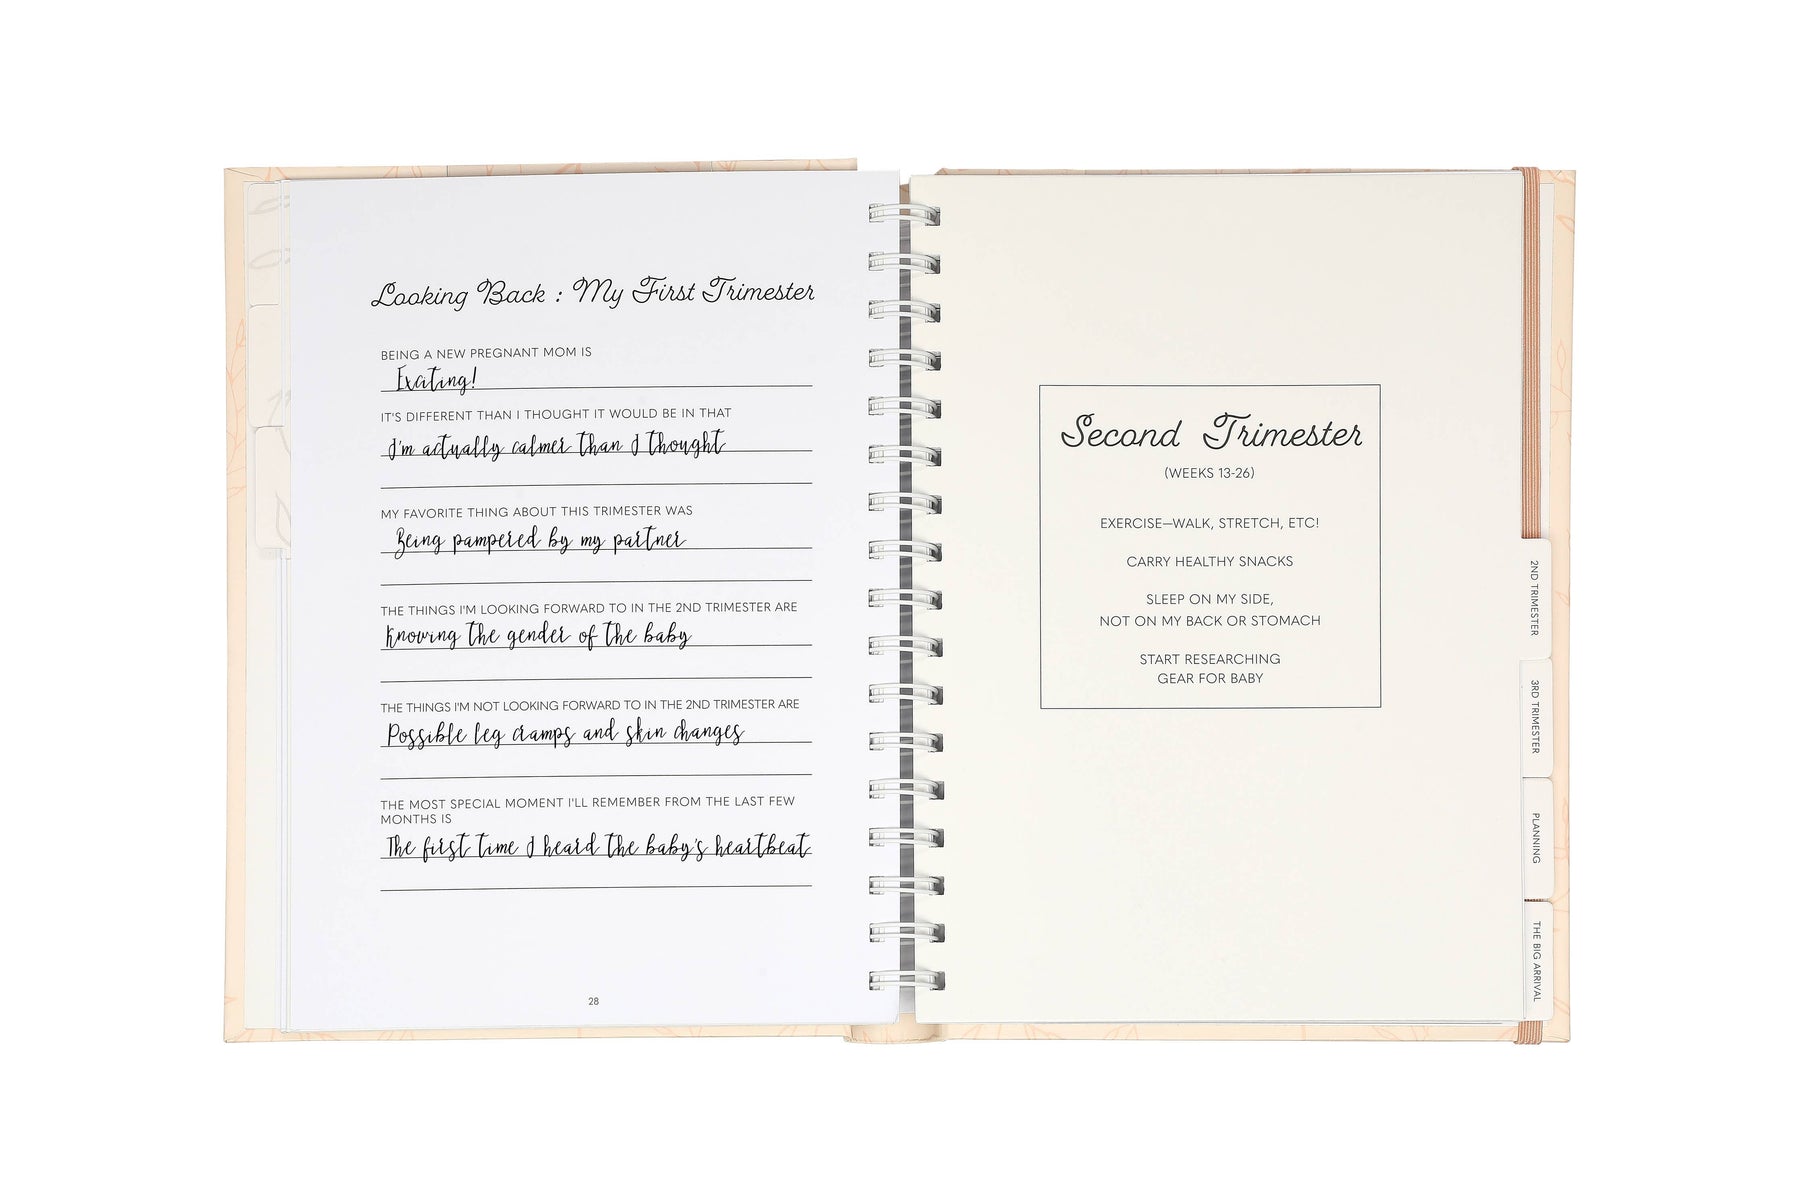 Looking Back : My First Trimester
BEING A NEW PREGNANT MOM IS
Exciting!
IT'S DIFFERENT THAN I THOUGHT IT WOULD BE IN THAT
I'm actually calmer than I thought
MY FAVORITE THING ABOUT THIS TRIMESTER WAS
Being pampered by my partner
THE THINGS I'M LOOKING FORWARD TO IN THE 2ND TRIMESTER ARE
Knowing the gender of the baby
THE THINGS I'M NOT LOOKING FORWARD TO IN THE 2ND TRIMESTER ARE
Possible leg cramps and skin changes
THE MOST SPECIAL MOMENT I'LL REMEMBER FROM THE LAST FEW
MONTHS IS
The first time I heard the baby's heartbeat
28
Second Trimester
(WEEKS 13-26)
EXERCISE—WALK, STRETCH, ETC!
CARRY HEALTHY SNACKS
SLEEP ON MY SIDE,
NOT ON MY BACK OR STOMACH
START RESEARCHING
GEAR FOR BABY
2ND TRIMESTER
3RD TRIMESTER
PLANNING
THE BIG ARRIVAL